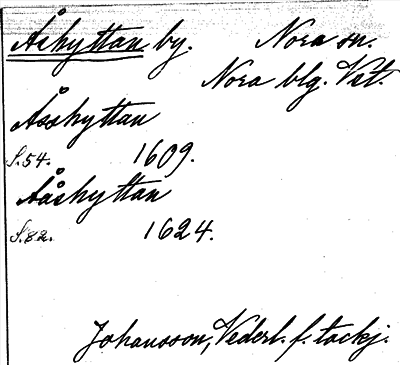 Åshyttan by. Nora sn.
Nora blg. Vstl.
Åsshyttan
S.54. 1609.
Aåshyttan
S.82. 1624.
Johansson, Vederl. f. tackj.